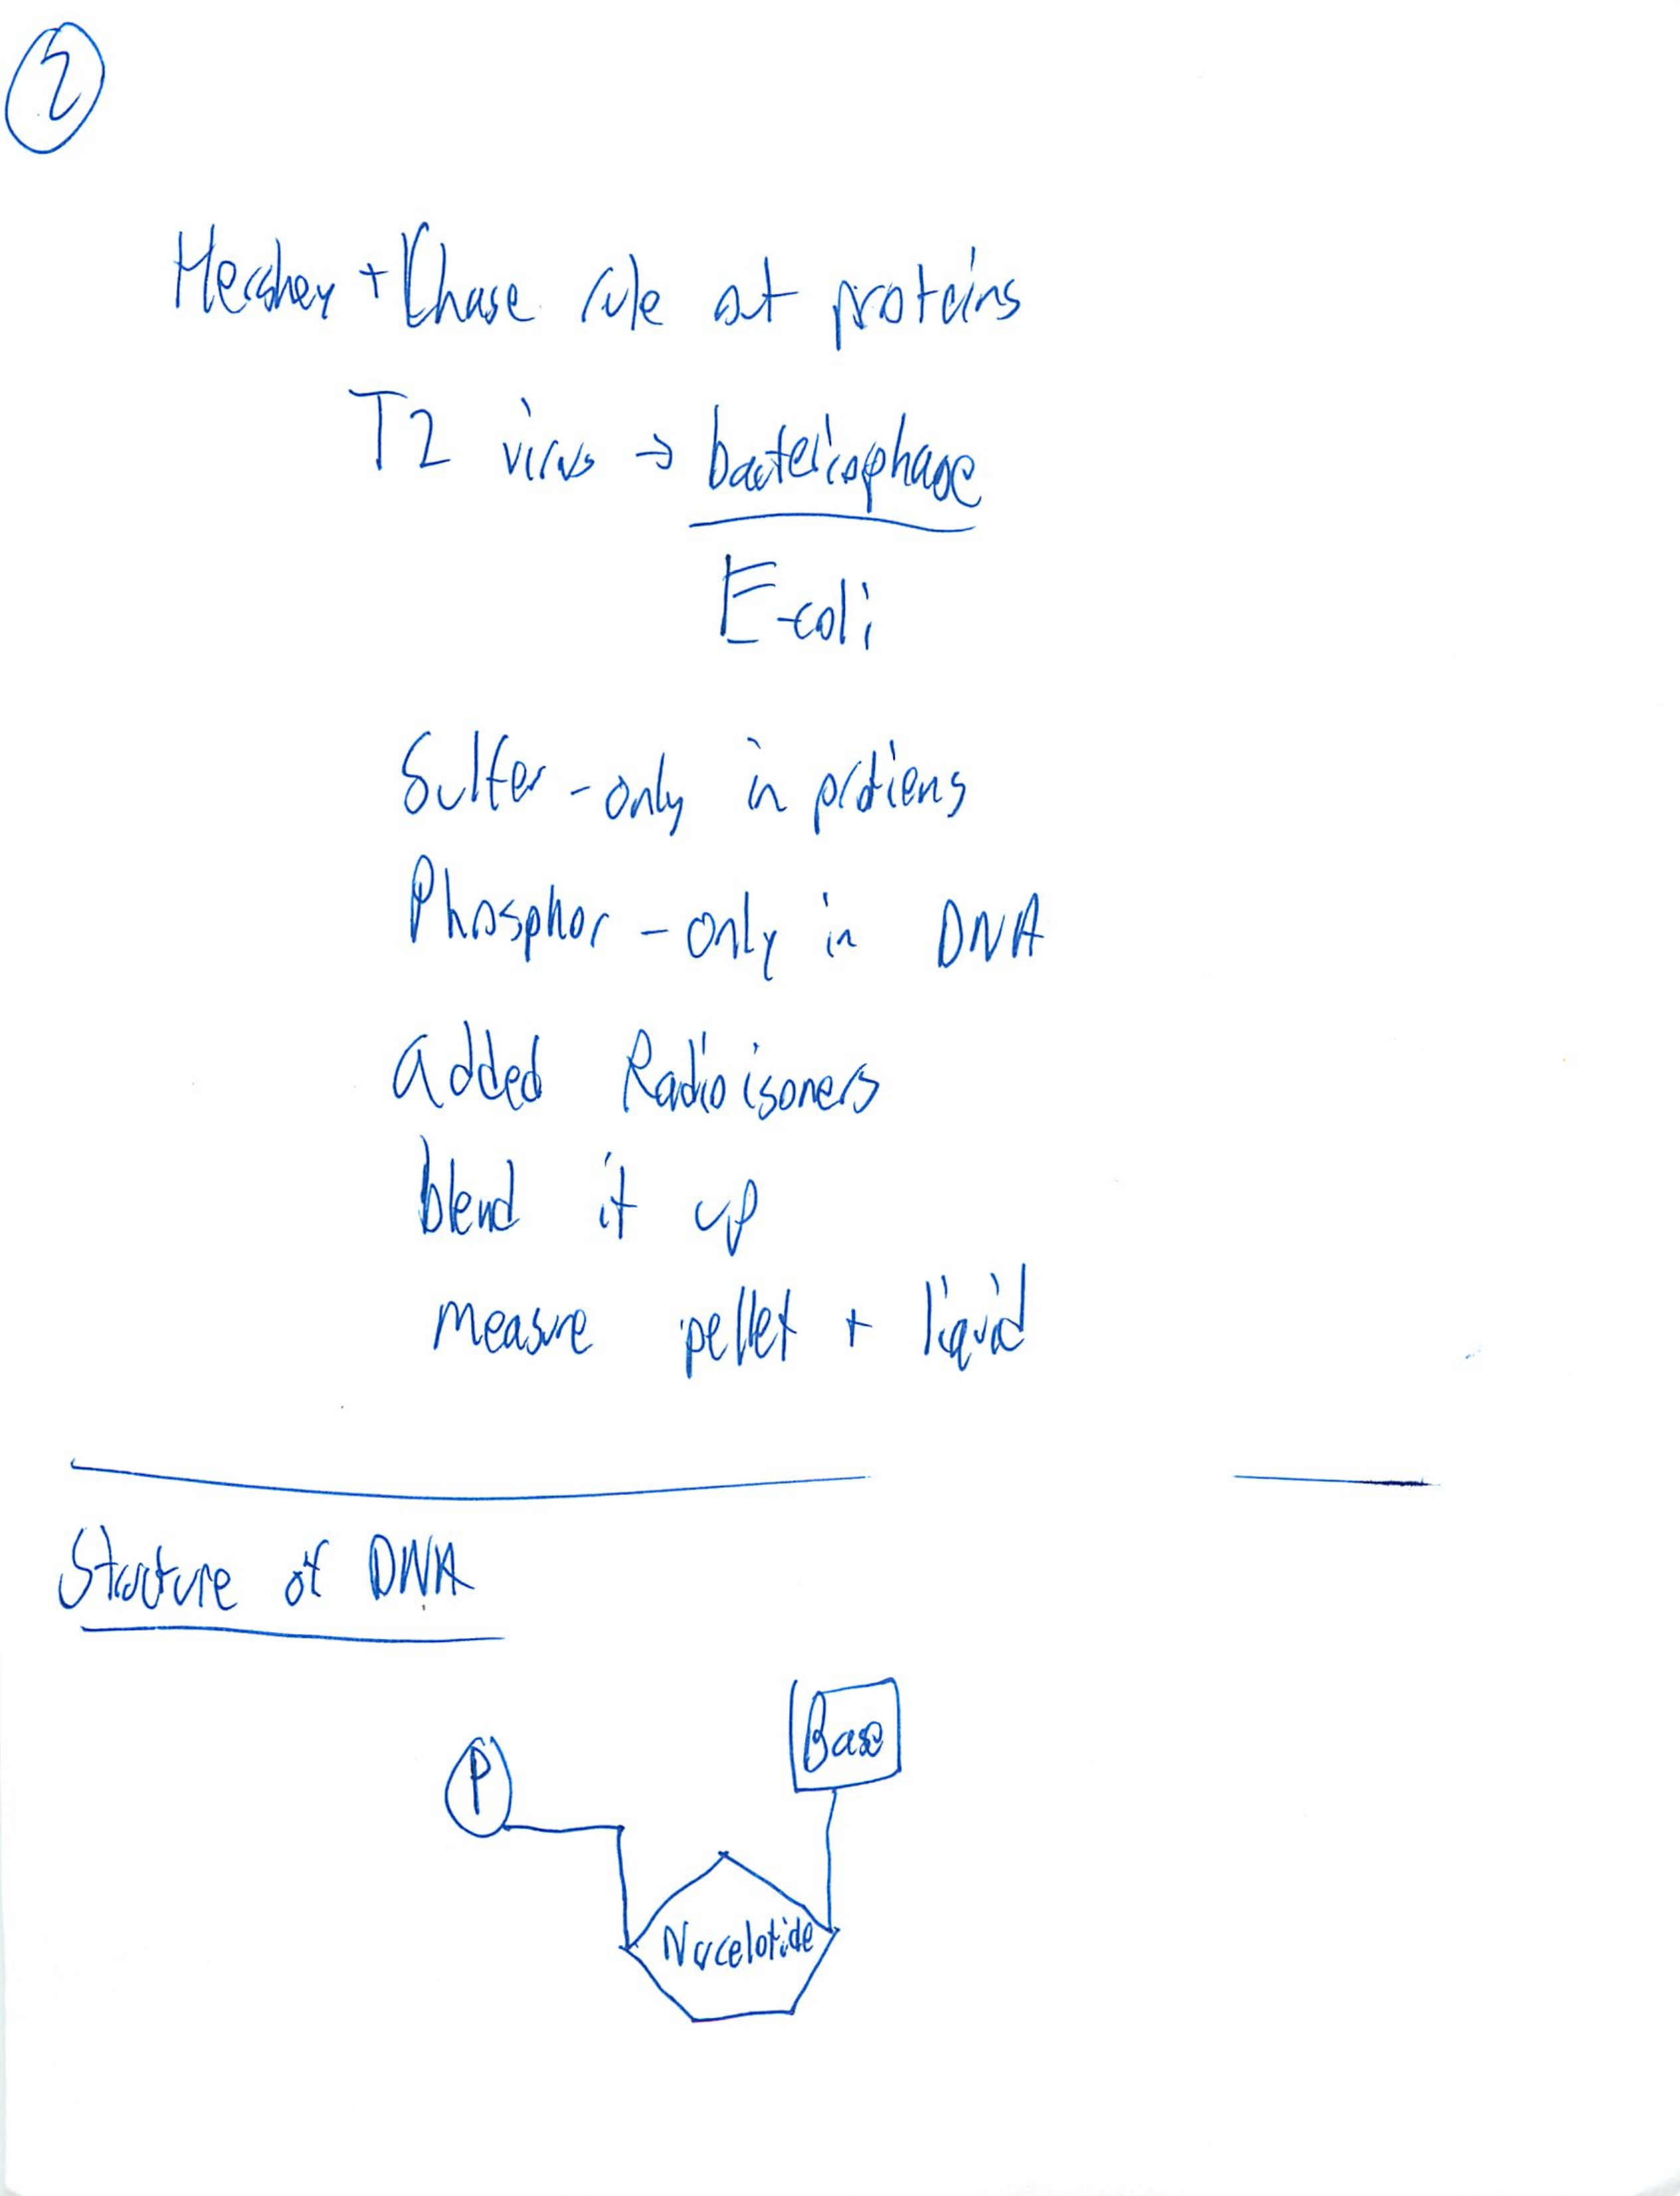 2
Hershey + Chase rule out proteins
T2 virus → bacteriophage
E-coli
Sulfer - only in protiens
Phosphor - only in DNA
added Radioisomers
blend it up
measure pellet + liquid
Structure of DNA
Base
P
Nucelotide